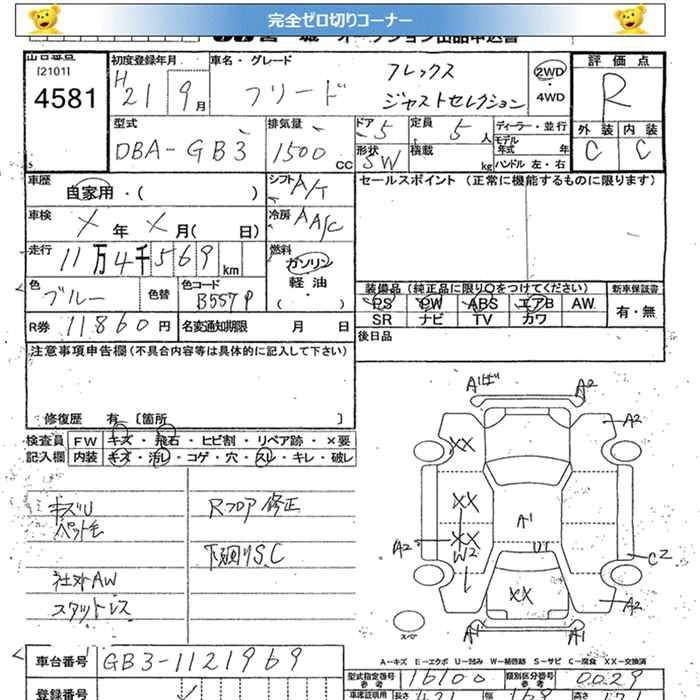 完全ゼロ切りコーナー
[2101]
4581
初度登録年月
H21 9月
車名・グレード
フリード
フレックス
ジャストセレクション
2WD
・
4WD
評価点
R
外装 内装
C C
型式
DBA-GB3
排気量
1500 CC
ドア 5
形状 5W
定員 5人
積載 kg
ディーラー・並行
モデル年式 年
ハンドル 左・右
車歴
自家用・( )
シフト A/T
セールスポイント (正常に機能するものに限ります)
車検
X年X月( 日)
冷房 AA/C
走行
11万4千569km
燃料
ガソリン
軽油
( )
色
ブルー
色替
色コード
B557P
装備品 (純正品に限り○をつけてください)
PS PW ABS エアB AW
SR ナビ TV カワ
新車保証書
有・無
R券 11860円
名変通知期限 月 日
後日品
注意事項申告欄 (不具合内容等は具体的に記入して下さい)
修復歴 有 〔箇所 〕
検査員記入欄
FW キズ・飛石・ヒビ割・リペア跡・×要
内装 キズ・汚レ・コゲ・穴・スレ・キレ・破レ
キズU
ペット毛
社外AW
スタットレス
Rフロア修正
下廻りS.C
A1 A2
A2
XX
XX
A2 XX
W2
A1
U1
C2
XX
A2
A1 A1
スペア
A=キズ E=エクボ U=凹み W=補修跡 S=サビ C=腐食 XX=交換済
車台番号 GB3-1121969
型式指定番号 16100
類別区分番号 0029
登録番号